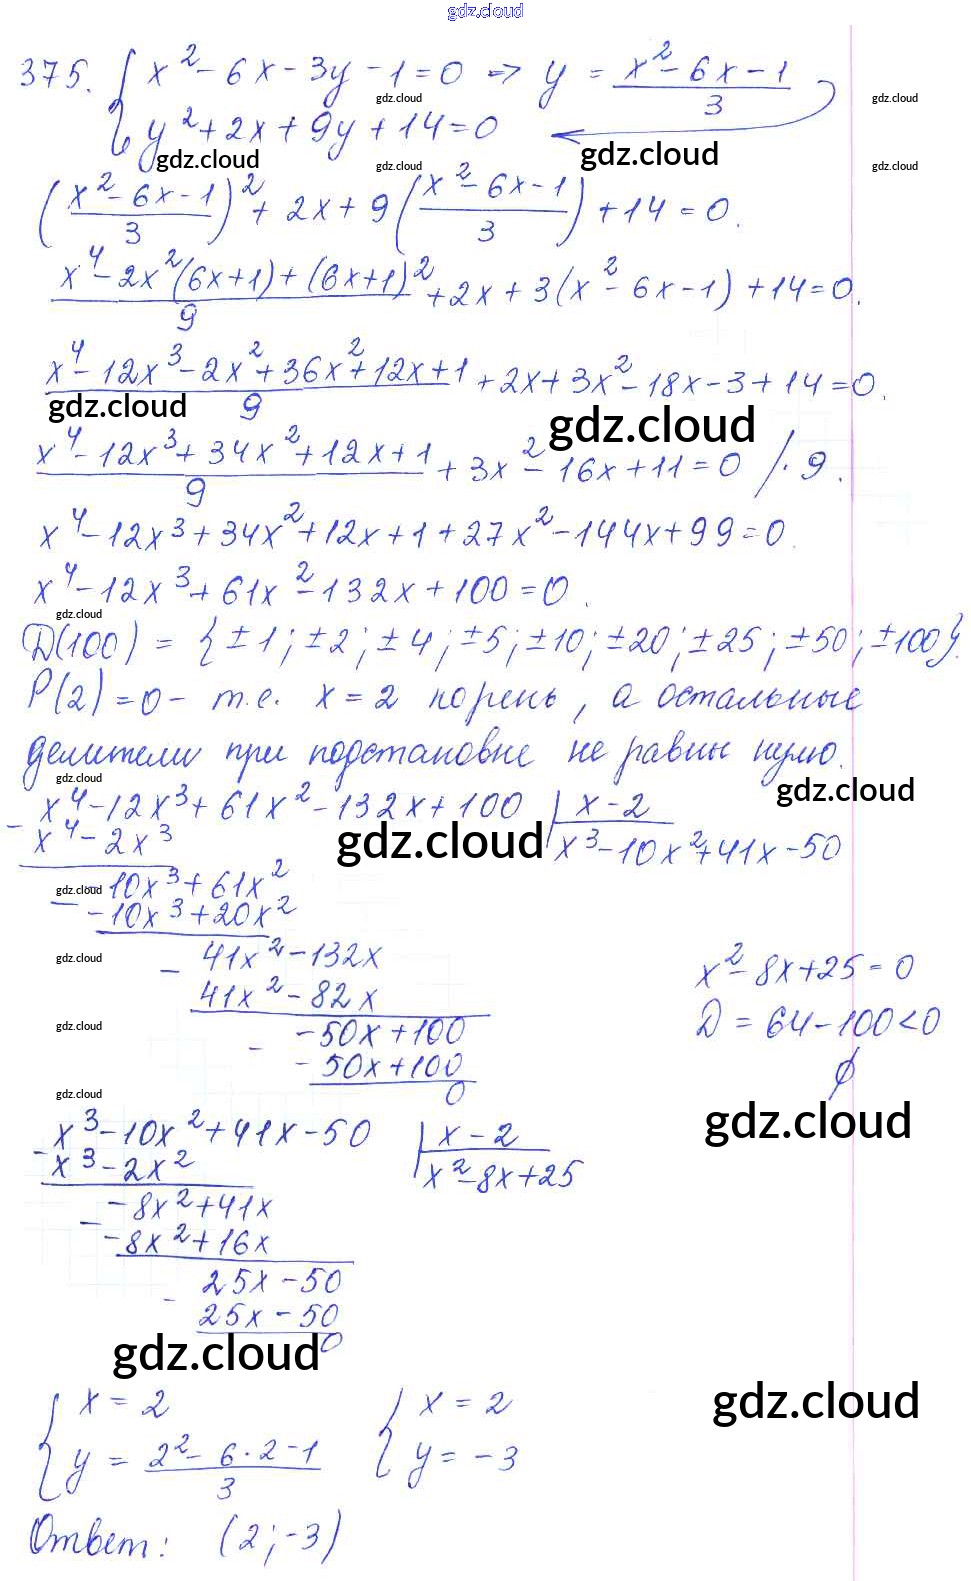 gdz.cloud
375. { x² - 6x - 3y - 1 = 0 ⇒ y = (x² - 6x - 1)/3
{ y² + 2x + 9y + 14 = 0
gdz.cloud gdz.cloud
gdz.cloud gdz.cloud gdz.cloud gdz.cloud
((x² - 6x - 1)/3)² + 2x + 9((x² - 6x - 1)/3) + 14 = 0.
(x⁴ - 2x²(6x+1) + (6x+1)²)/9 + 2x + 3(x² - 6x - 1) + 14 = 0.
(x⁴ - 12x³ - 2x² + 36x² + 12x + 1)/9 + 2x + 3x² - 18x - 3 + 14 = 0.
gdz.cloud gdz.cloud
(x⁴ - 12x³ + 34x² + 12x + 1)/9 + 3x² - 16x + 11 = 0 /· 9.
x⁴ - 12x³ + 34x² + 12x + 1 + 27x² - 144x + 99 = 0.
x⁴ - 12x³ + 61x² - 132x + 100 = 0.
gdz.cloud
D(100) = {±1; ±2; ±4; ±5; ±10; ±20; ±25; ±50; ±100}.
P(2) = 0 - т.е. x = 2 корень, а остальные
делители при подстановке не равны нулю.
gdz.cloud gdz.cloud
x⁴ - 12x³ + 61x² - 132x + 100 | x - 2
- x⁴ - 2x³ x³ - 10x² + 41x - 50
gdz.cloud
gdz.cloud
- 10x³ + 61x²
- - 10x³ + 20x²
41x² - 132x
gdz.cloud
- 41x² - 82x
- 50x + 100
gdz.cloud
- - 50x + 100
0
x² - 8x + 25 = 0
D = 64 - 100 < 0
∅
gdz.cloud
gdz.cloud
x³ - 10x² + 41x - 50 | x - 2
- x³ - 2x² x² - 8x + 25
- 8x² + 41x
- - 8x² + 16x
25x - 50
- 25x - 50
0
gdz.cloud
gdz.cloud
{ x = 2 { x = 2
{ y = (2² - 6 · 2 - 1)/3 { y = - 3
Ответ: (2; -3)